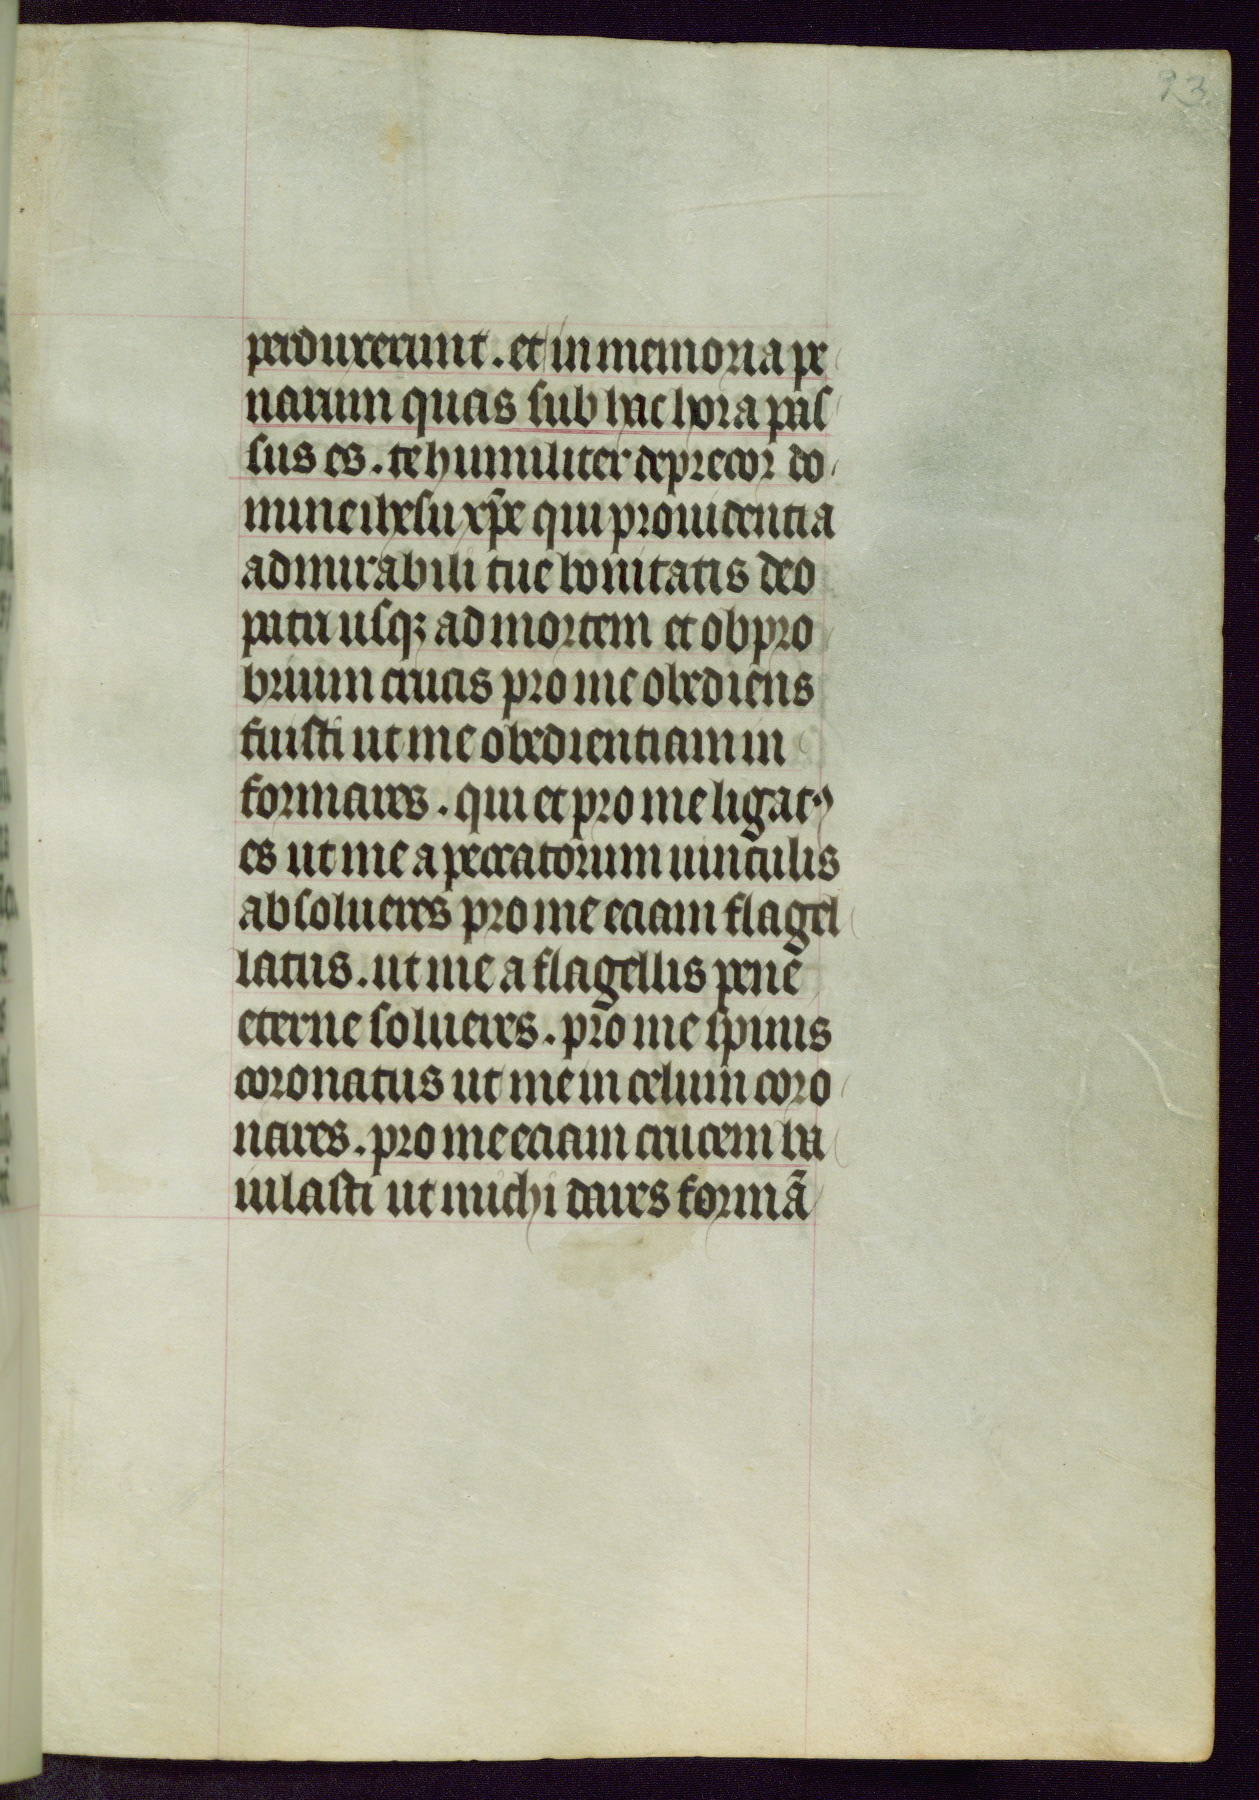 93.
perduxerunt. et in memoria pe
narum quas sub hac hora pas
sus es. te humiliter deprecor do
mine ihesu xp̄e qui prouidentia
admirabili tue bonitatis deo
patri usqꝫ ad mortem et obpro
brium crucis pro me obediens
fuisti ut me obedientiam in
formares. qui et pro me ligatꝰ
es ut me a peccatorum uinculis
absolueres pro me eciam flagel
latus. ut me a flagellis penē
eterne solueres. pro me spinis
coronatus ut me in celum coro
nares. pro me eciam crucem ba
iulasti ut michi dares formā